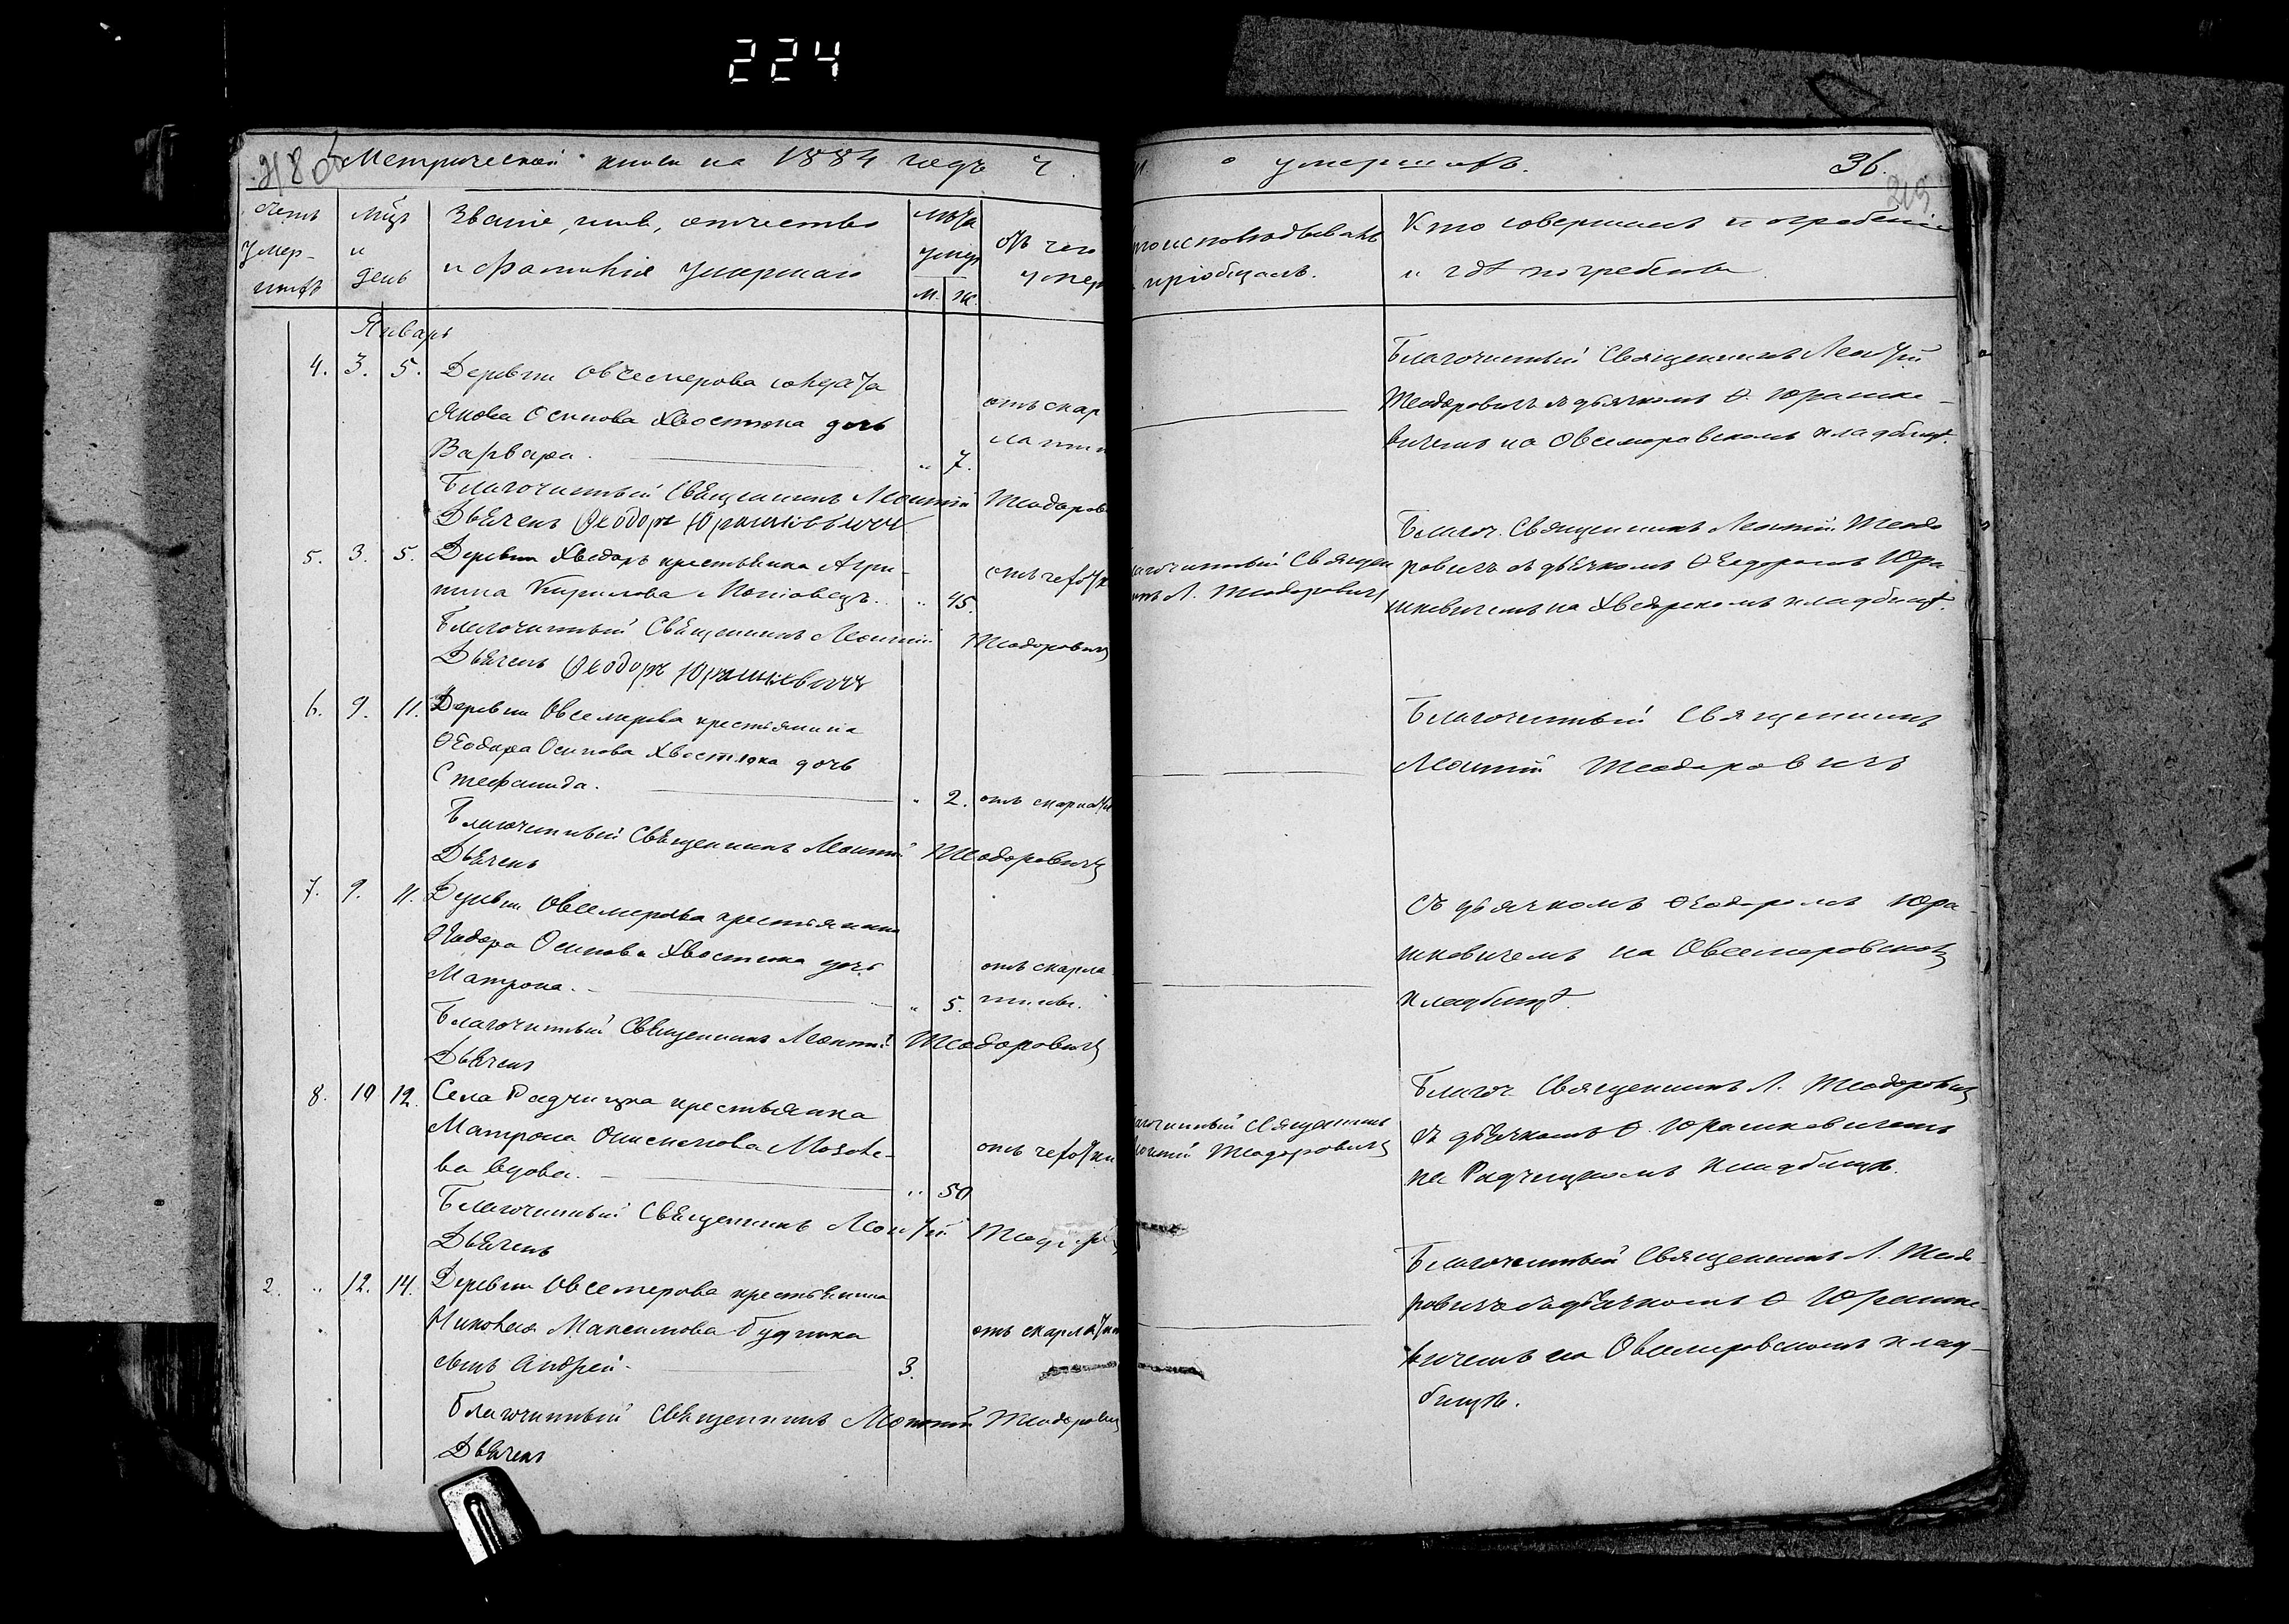 224
Метрической книги на 1884 годъ ч
о умершихъ. 36.
счетъ умер-шихъ
мѣц. и день
Званіе, имя, отчество
и фамилія умершаго
лѣта умер
м. ж.
отъ чего умер
исповѣдывалъ
пріобщалъ.
Кто совершалъ погребеніе
и гдѣ погребены
Январь
4. 3. 5. Деревни Овсемерова солдата
Якова Осипова Хвостюка дочь
Варвара. „ 7.
отъ скар
латин
Благочинный Священникъ Леонтій Теодоров
Дьячекъ Ѳеодоръ Юрашкевичъ
Благочинный Священникъ Леонтій
Теодоровичъ съ дьячкомъ Ѳ. Юрашке-
вичемъ на Овсемеровскомъ кладбищѣ.
5. 3. 5. Деревни Хведоръ крестьянка Агри-
пина Кирилова „ 45.
отъ чехотк
Благочинный Священникъ Леонтій Теодоровичъ
Дьячекъ Ѳеодоръ Юрашкевичъ
агочинный Священ
Л. Теодоровичъ
Благоч. Священникъ Леонтій Теодо
ровичъ съ дьячкомъ Ѳеодоромъ Юра
шкевичемъ на Хведорскомъ кладбищѣ.
6. 9. 11. Деревни Овсемерова крестьянина
Ѳеодора Осипова Хвостюка дочь
Стефанида. „ 2. отъ скарлати
Благочинный Священникъ Леонтій Теодоровичъ
Дьячекъ
Благочинный Священникъ
Леонтій Теодоровичъ
7. 9. 11. Деревни Овсемерова крестьянина
Ѳеодора Осипова Хвостюка дочь
Матрона. „ 5.
отъ скарла
тины.
Благочинный Священникъ Леонтій Теодоровичъ
Дьячекъ
съ дьячкомъ Ѳеодоромъ Юра
шкевичемъ на Овсемеровском
кладбищѣ.
8. 10 12. Села Радчицка крестьянка
Матрона Онисимова
ва вдова. „ 50
отъ чехотки
Благочинный Священникъ Леонтій
Дьячекъ
гочинный Священникъ
Леонтій Теодоровичъ
Благоч. Священникъ Л. Теодоровичъ
съ дьячкомъ Ѳ. Юрашкевичемъ
на Радчицкомъ кладбищѣ.
2. „ 12. 14. Деревни Овсемерова крестьянина
Николая Максимова Будника
сынъ Андрей. 3.
отъ скарлатин
Благочинный Священникъ Леонтій Теодорович
Дьячекъ
Благочинный Священникъ Л. Теодо-
ровичъ съ дьячкомъ Ѳ Юрашке-
вичемъ на Овсемеровскомъ клад-
бищѣ.